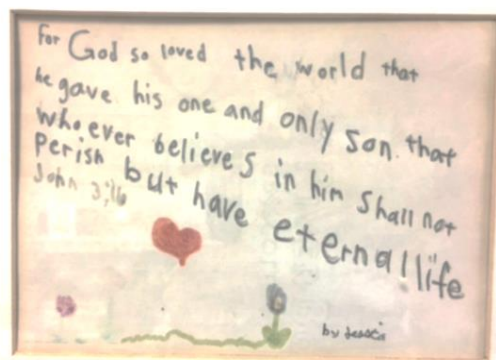 for God so loved the world that
he gave his one and only son. that
whoever believes in him shall not
perish but have eternal life
John 3:16
by Jessie